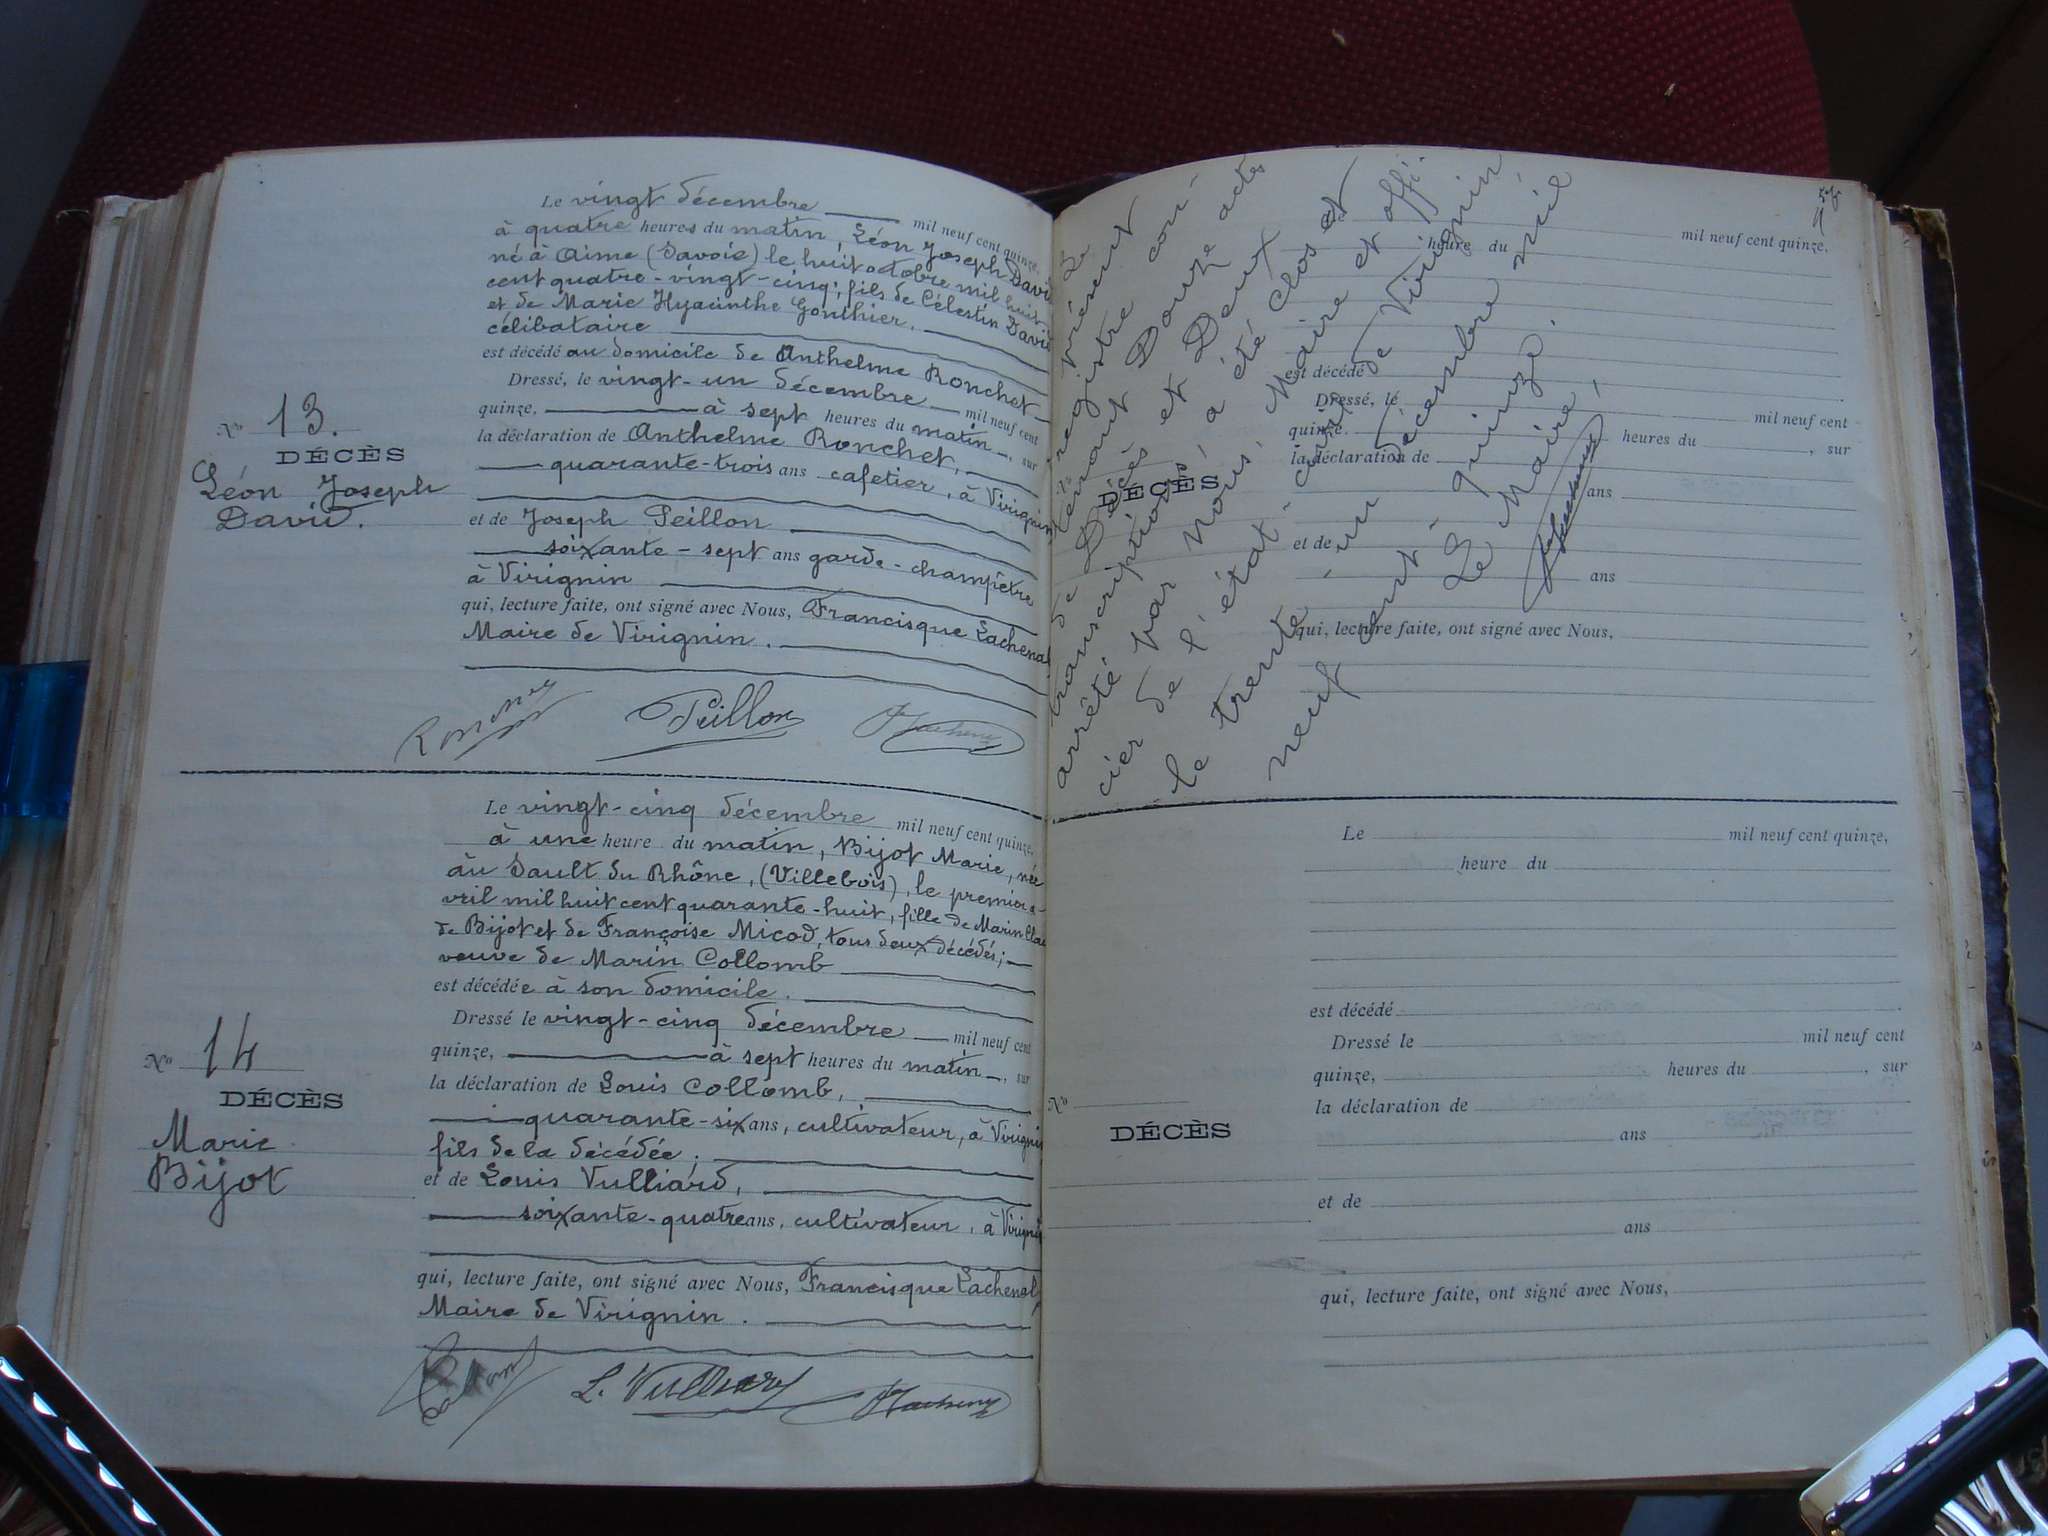 Le vingt décembre mil neuf cent quinze,
à quatre heures du matin, Léon Joseph David
né à Aime (Savoie) le huit octobre mil huit
cent quatre-vingt-cinq, fils de Célestin David
et de Marie Hyacinthe Gonthier.
célibataire
est décédé au domicile de Anthelme Ronchet
Dressé, le vingt-un décembre mil neuf cent
quinze, à sept heures du matin, sur
la déclaration de Anthelme Ronchet,
quarante-trois ans cafetier, à Virignin
et de Joseph Peillon
soixante-sept ans garde-champêtre
à Virignin
qui, lecture faite, ont signé avec Nous, Francisque Lachenal
Maire de Virignin.
No 13.
DÉCÈS
Léon Joseph
David.
Peillon
Le vingt-cinq décembre mil neuf cent quinze,
à une heure du matin, Bijot Marie, née
au Sault du Rhône, (Villebois), le premier a-
vril mil huit cent quarante-huit, fille de Marin Clau
de Bijot et de Françoise Micod, tous deux décédés;
veuve de Marin Collomb
est décédée à son domicile.
Dressé le vingt-cinq décembre mil neuf cent
quinze, à sept heures du matin, sur
la déclaration de Louis Collomb,
quarante-six ans, cultivateur, à Virignin
fils de la décédée;
et de Louis Vulliard,
soixante-quatre ans, cultivateur, à Virignin
qui, lecture faite, ont signé avec Nous, Francisque Lachenal,
Maire de Virignin.
No 14
DÉCÈS
Marie
Bijot
L. Vulliard
Le présent
registre con-
tenant Douze actes
de Décès et Deux
transcriptions, a été clos et
arrêté par Nous, Maire et offi-
cier de l'état-civil de Virignin
le trente-un décembre mil
neuf cent-quinze.
Le Maire,
mil neuf cent quinze,
heure du
est décédé
Dressé, le mil neuf cent
quinze. heures du , sur
la déclaration de
ans
et de
ans
qui, lecture faite, ont signé avec Nous,
No
DÉCÈS
Le mil neuf cent quinze,
heure du
est décédé
Dressé le mil neuf cent
quinze, heures du , sur
la déclaration de
ans
et de
ans
qui, lecture faite, ont signé avec Nous,
No
DÉCÈS